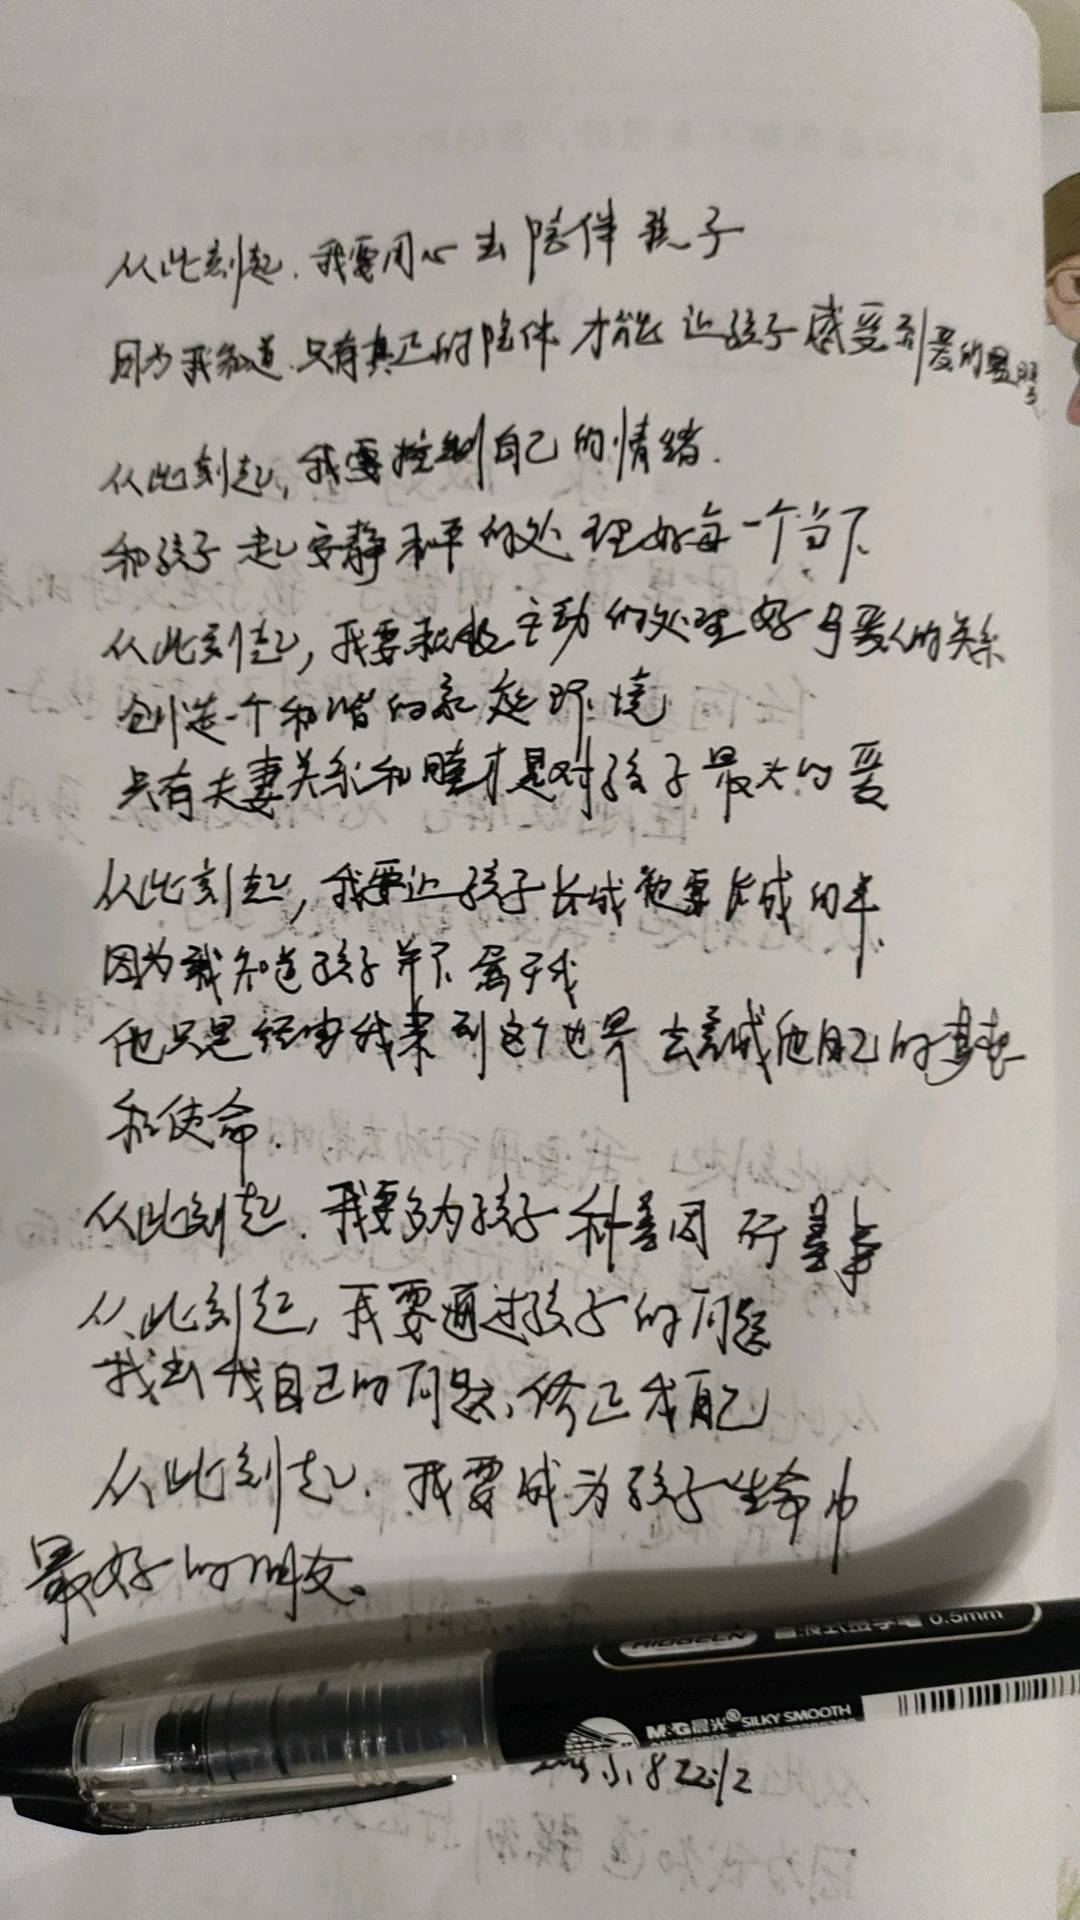 从此刻起，我要用心去陪伴孩子
因为我知道，只有真正的陪伴才能让孩子感受到爱的
从此刻起，我要控制自己的情绪，
和孩子一起安静和平的处理好每一个当下、
从此刻起，我要积极主动的处理好与爱人的关系
创造一个和谐的家庭环境
只有夫妻关系和睦才是对孩子最大的爱
从此刻起，我要让孩子长成他要长成的
因为我知道孩子并不属于我
他只是经由我来到这个世界去完成他自己的梦想
和使命.
从此刻起，我要多为孩子种善因 行善事
从此刻起，我要通过孩子的问题
找出我自己的问题，修正我自己
从此刻起，我要成为孩子生命中
最好的朋友。
签字笔 0.5mm
M&G晨光® SILKY SMOOTH
22:12